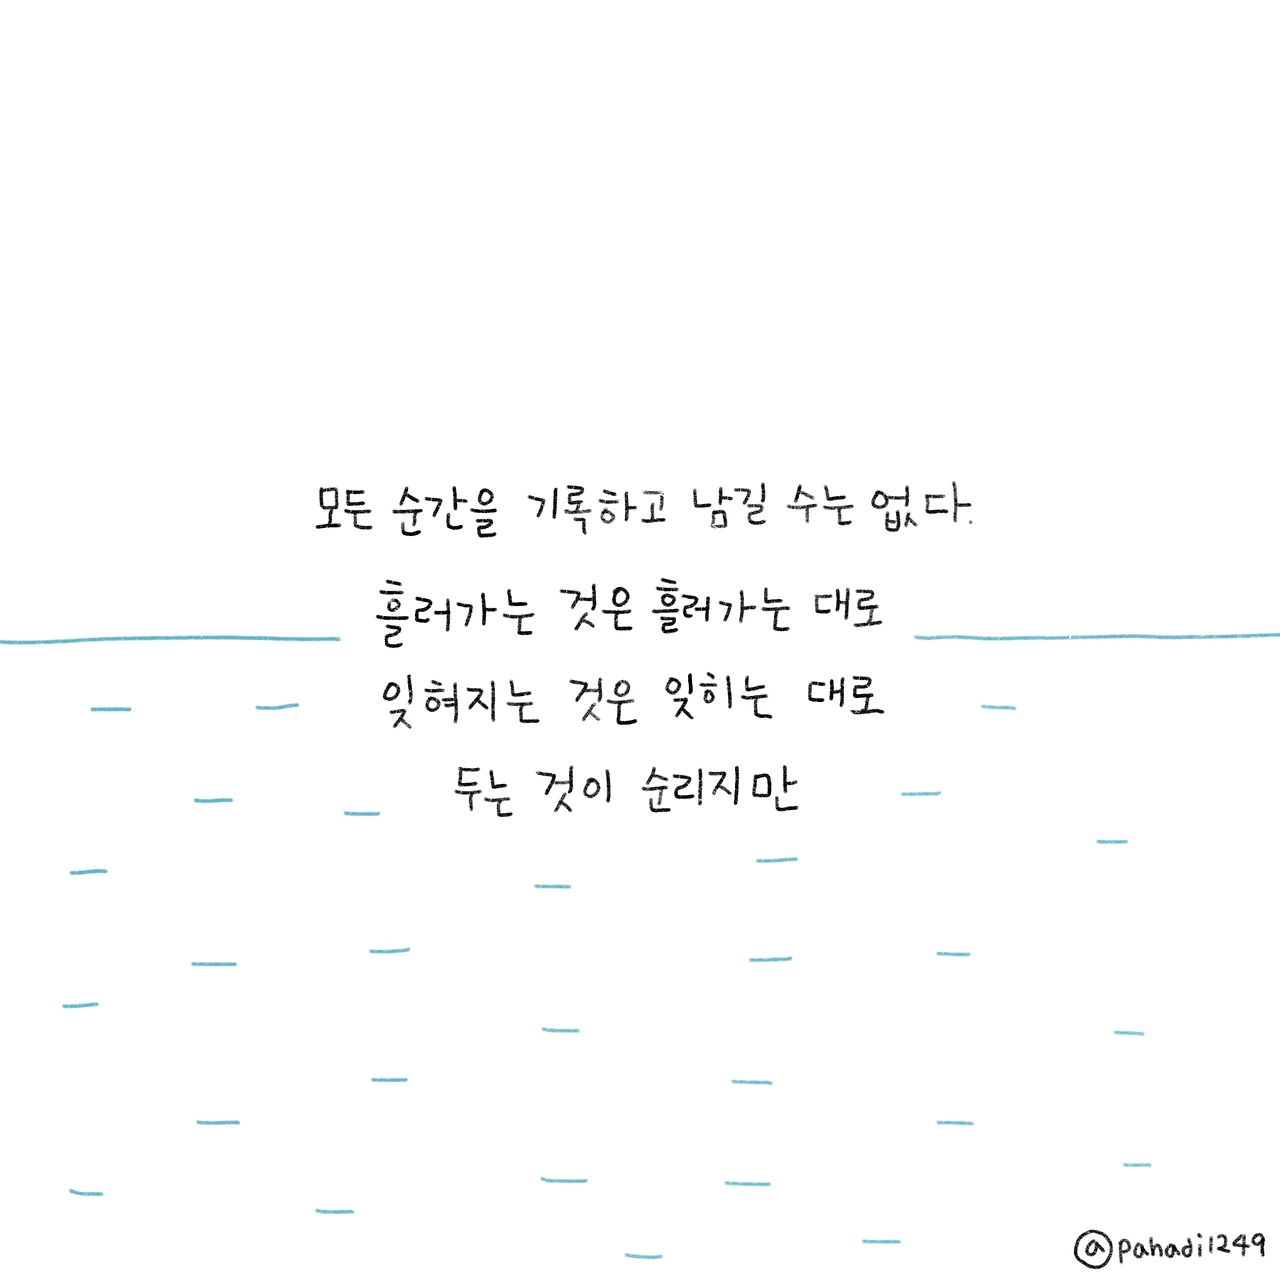 모든 순간을 기록하고 남길 수는 없다.
흘러가는 것은 흘러가는 대로
잊혀지는 것은 잊히는 대로
두는 것이 순리지만
@pahadi1249